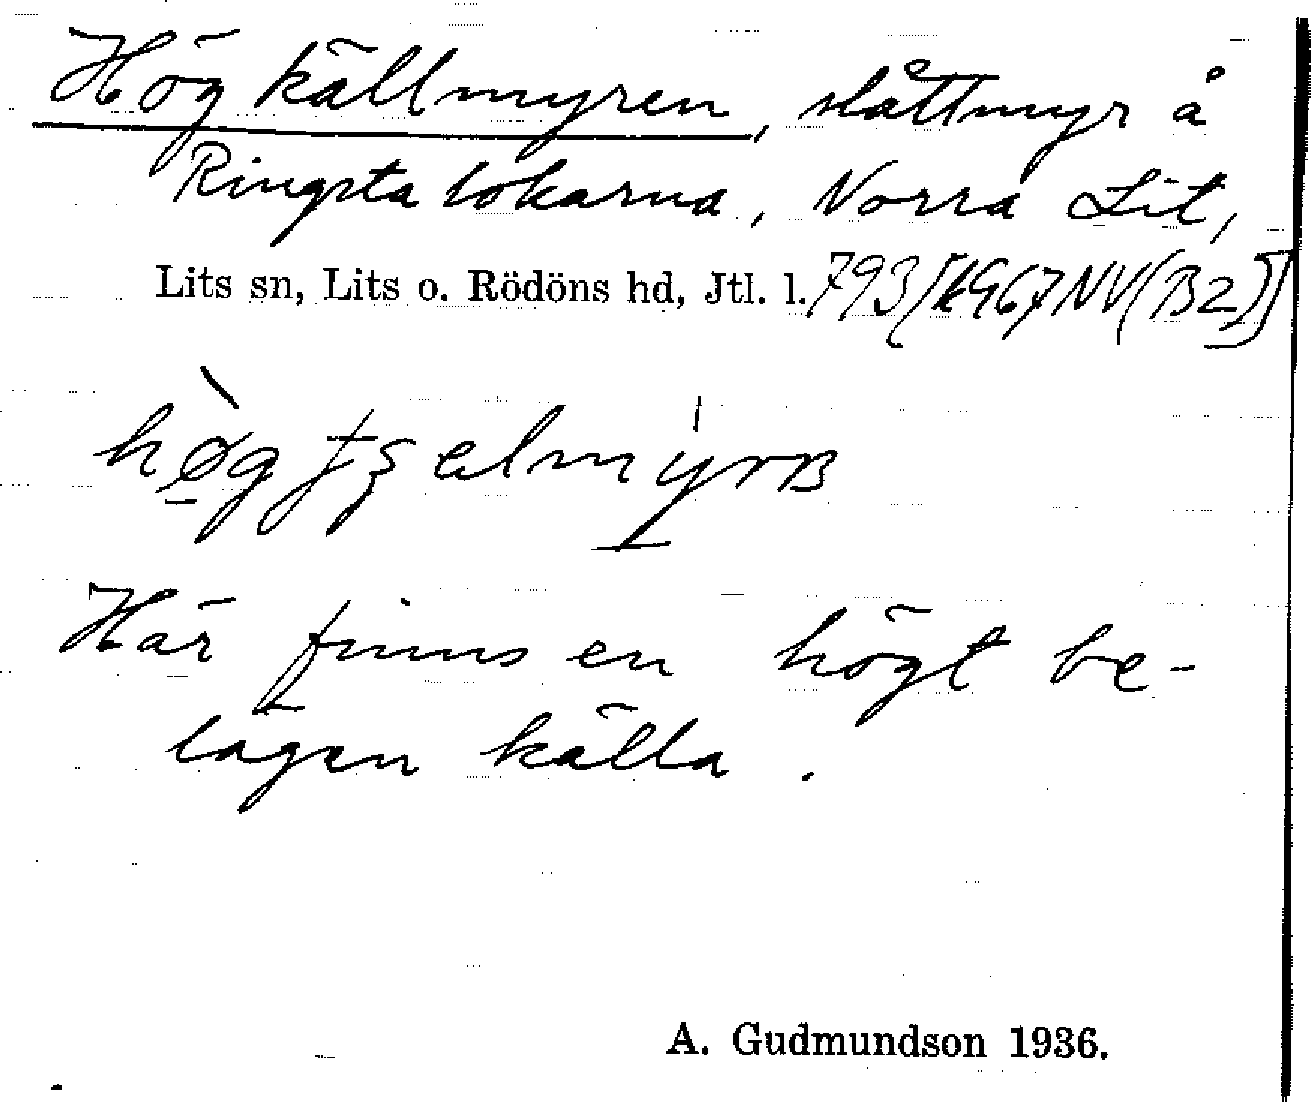 Högkällmyren, slåttmyr å
Ringsta lokarna, Norra Lit,
Lits sn, Lits o. Rödöns hd, Jtl. l. 793 [k967NV(B2)]
Här finns en högt be-
lägen källa.
A. Gudmundson 1936.